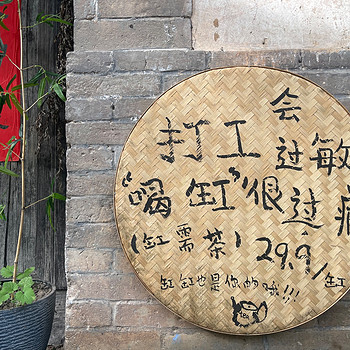 打工会过敏
"喝缸"很过瘾
(缸需茶) 29.9/缸
缸缸也是你的哦!!!